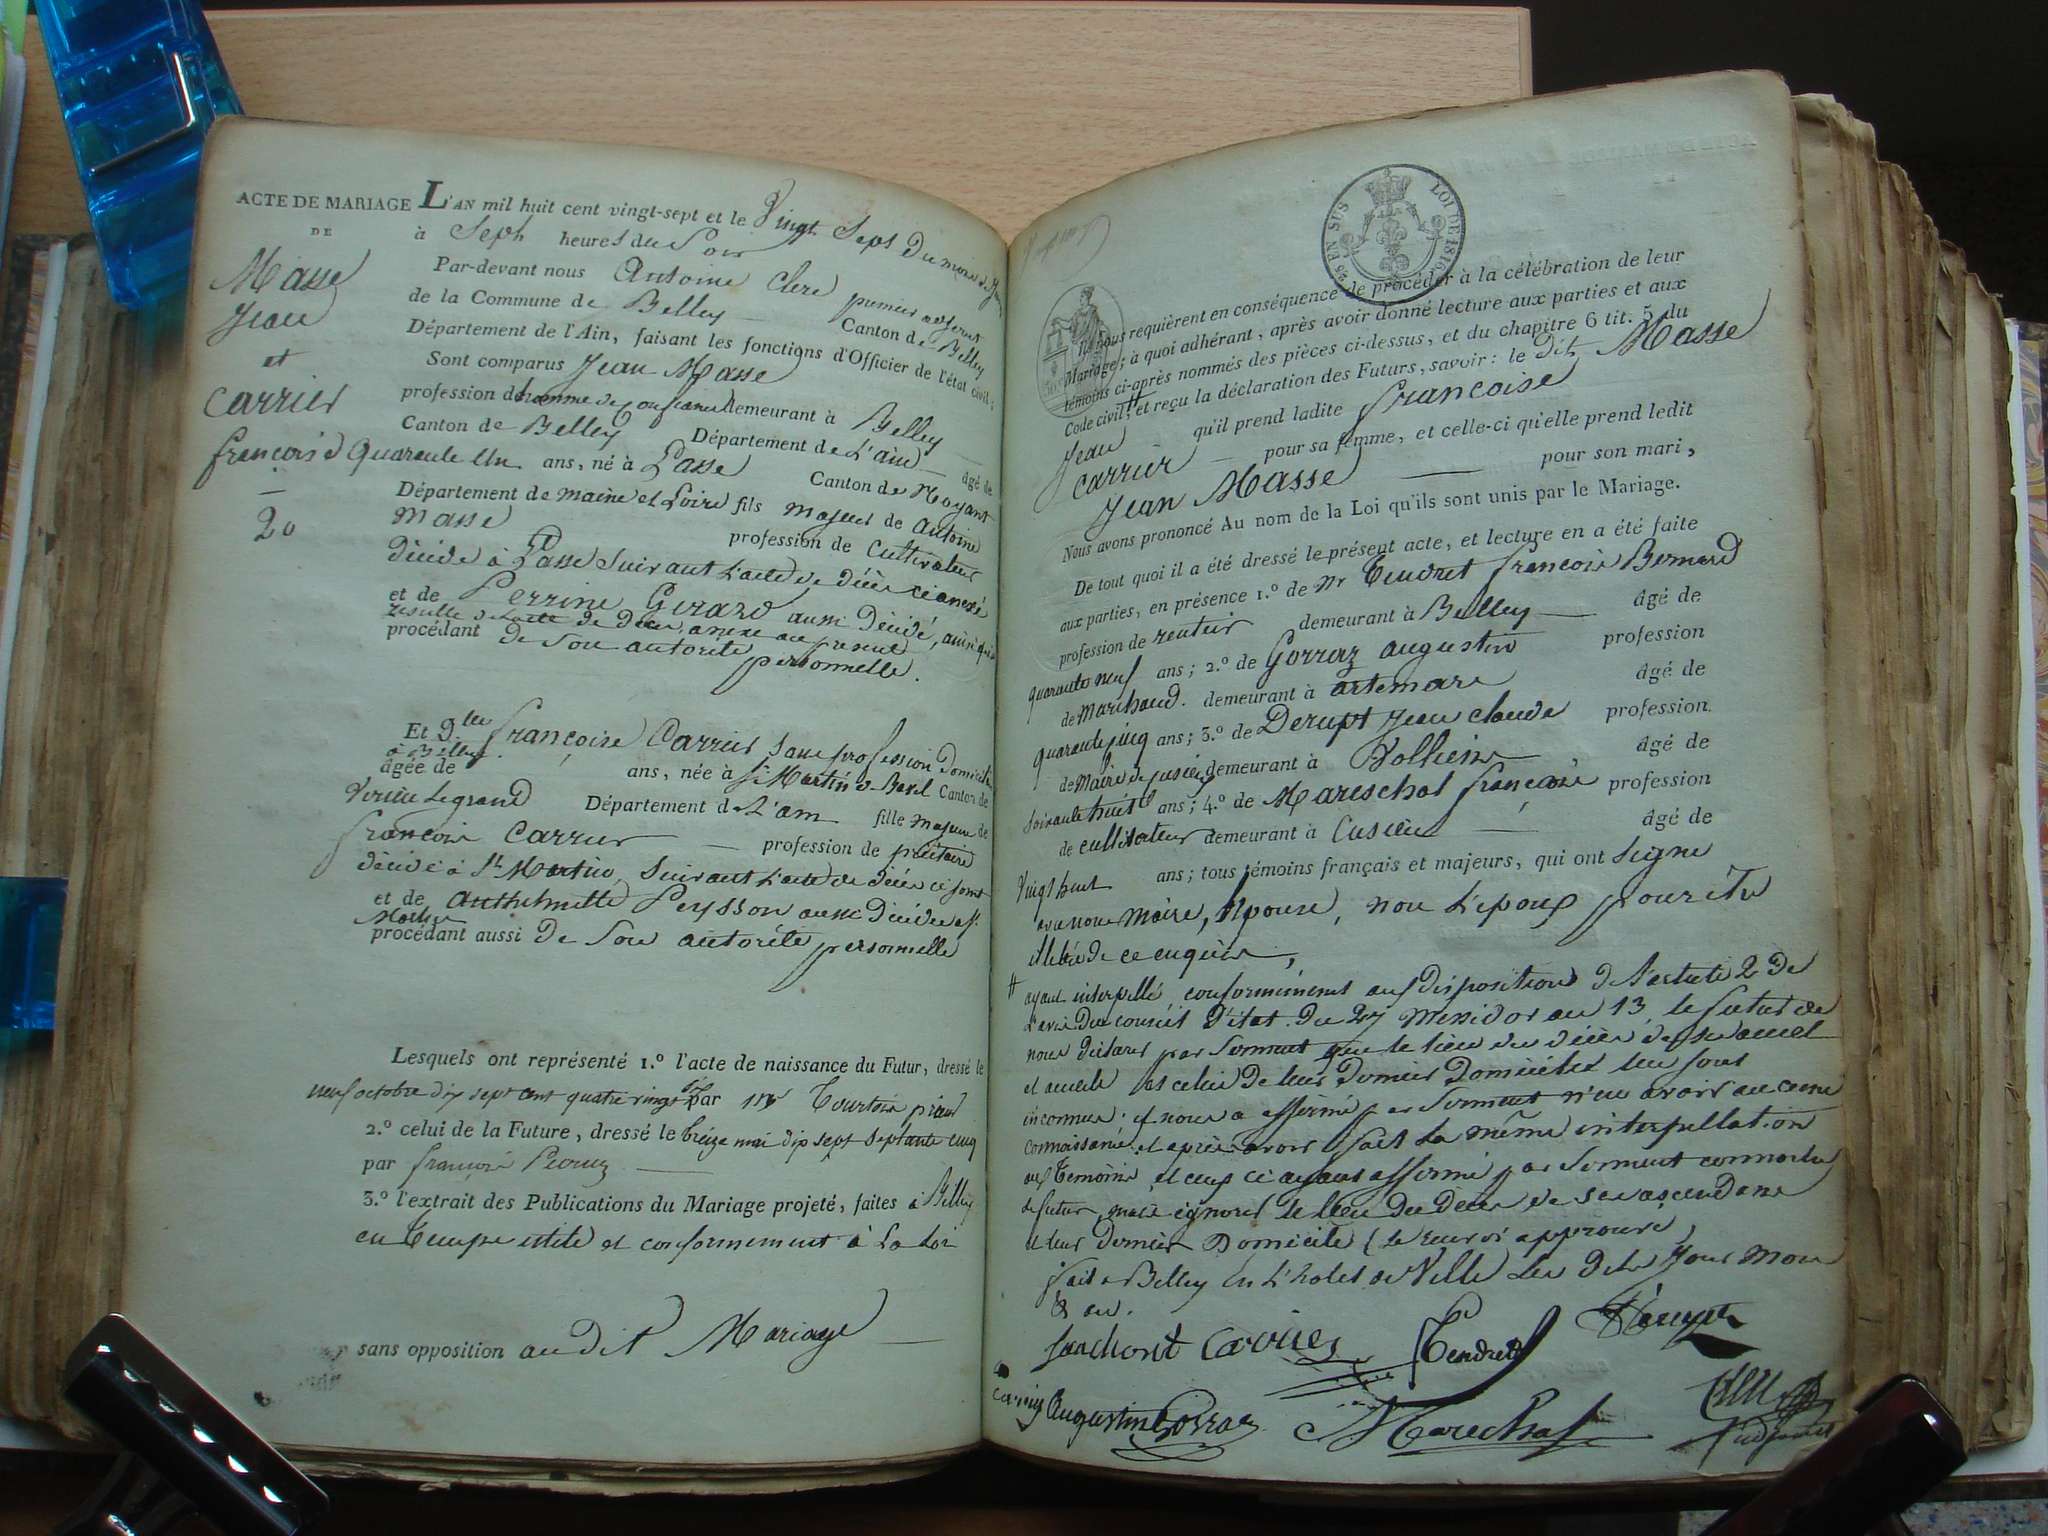 ACTE DE MARIAGE
DE
Masse
Jean
et
Carrier
françoise
20
L'AN mil huit cent vingt-sept et le Vingt Sept Du mois de
à Sept heures du Soir
Par-devant nous Antoine Clerc premier adjoint
de la Commune de Belley Canton de Belley
Département de l'Ain, faisant les fonctions d'Officier de l'état civil.
Sont comparus Jean Masse
profession d'homme de confiance demeurant à Belley
Canton de Belley Département de L'ain âgé de
Quarante Un ans, né à Passe Canton de Noyant
Département de maine et Loire fils majeur de Antoine
Masse profession de Cultivateur
décédé à Passe Suivant L'acte de décès ci annexé
et de Perrine Girard aussi décédé, ainsi que
résulte de l'acte de décès annexé au présent
procédant de Son autorité
personnelle.
Et Dlle françoise Carrier Sans profession Domiciliée
à Belley
âgée de ans, née à St Martin de Bavel Canton de
Virieu Legrand Département de L'ain fille majeure de
françois Carrier profession de
décédé à St Martin, Suivant L'acte de décès ci joint
et de Anthelmette Peysson aussi décédée à St
Martin
procédant aussi De Son autorité personnelle
Lesquels ont représenté 1.º l'acte de naissance du Futur, dressé le
neuf octobre dix sept cent quatre vingt par Mr
2.º celui de la Future, dressé le treize mai dix sept septante cinq
par françois
3.º l'extrait des Publications du Mariage projeté, faites à Belley
en Temps utile et conformement à La Loi
sans opposition au Dit Mariage
25 EN SUS
LOI DE 1816
Ils nous requièrent en conséquence de procéder à la célébration de leur
Mariage; à quoi adhérant, après avoir donné lecture aux parties et aux
témoins ci-après nommés des pièces ci-dessus, et du chapitre 6 tit. 5 du
Code civil, # et reçu la déclaration des Futurs, savoir: le Dit Masse
Jean qu'il prend ladite françoise
Carrier pour sa femme, et celle-ci qu'elle prend ledit
Jean Masse pour son mari,
Nous avons prononcé Au nom de la Loi qu'ils sont unis par le Mariage.
De tout quoi il a été dressé le présent acte, et lecture en a été faite
aux parties, en présence 1.º de Mr Tendret françois Bernard
profession de rentier demeurant à Belley âgé de
quarante neuf ans; 2.º de Gorraz augustin profession
de Marchand. demeurant à artemare âgé de
quarante cinq ans; 3.º de Derupt Jean claude profession
de Maire de cusieu demeurant à Vollien âgé de
soixante huit ans; 4.º de Mareschal françois profession
de cultivateur demeurant à Cusieu âgé de
Vingt huit ans; tous témoins français et majeurs, qui ont Signé
avec nous Maire, l'épouse, non L'epoux pour être
illitéré de ce enquis,
# ayant interpellé, conformément aux dispositions de l'article 2 De
L'avis Du conseil D'état Du 27 Messidor an 13, le futur de
nous déclarer par Serment que le lieu du décès de ses aieul
et aieule et celui De leur Dernier Domicile leur sont
inconnus; il nous a affirmé par Serment n'en avoir aucune
connaissance, et après avoir fait La même interpellation
aux Témoins, et ceux ci ayant affirmé par Serment connaitre
le futur, mais ignorer le lieu Du Décès de ses ascendans
et leur Dernier Domicile (le renvoi approuvé)
fait à Belley en L'hotel de Ville Les Dits Jour Mois
& an.
Carrier Tendret Derupt
Augustin Gorraz Marechal